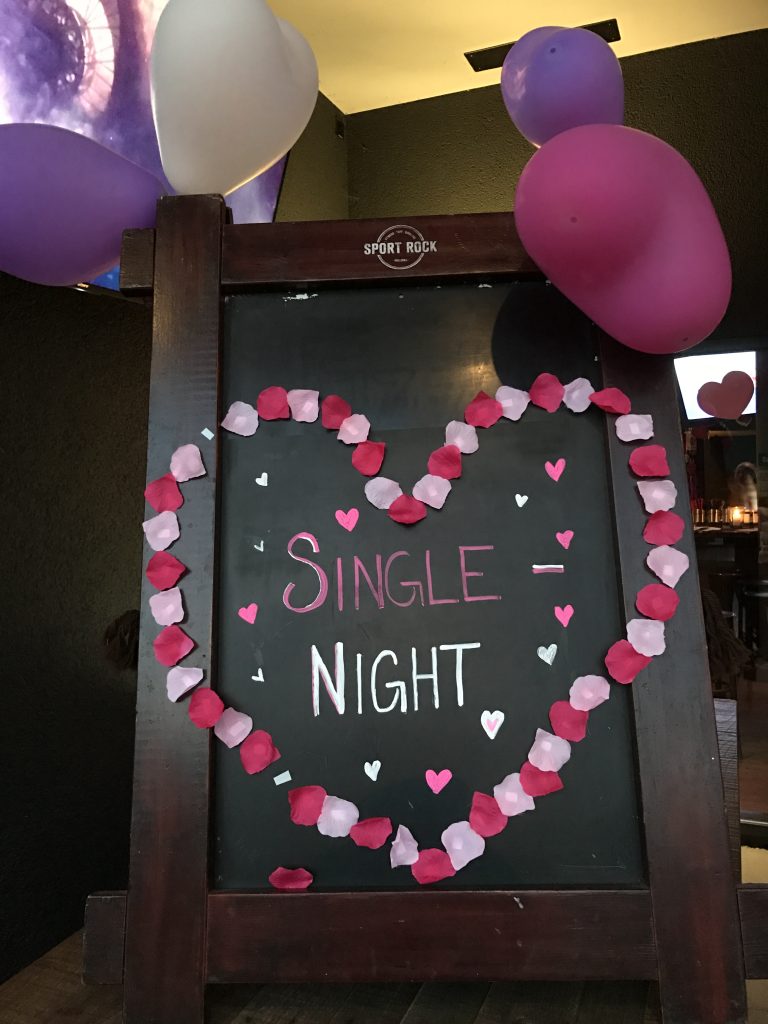 SPORT ROCK
SINGLE –
NIGHT